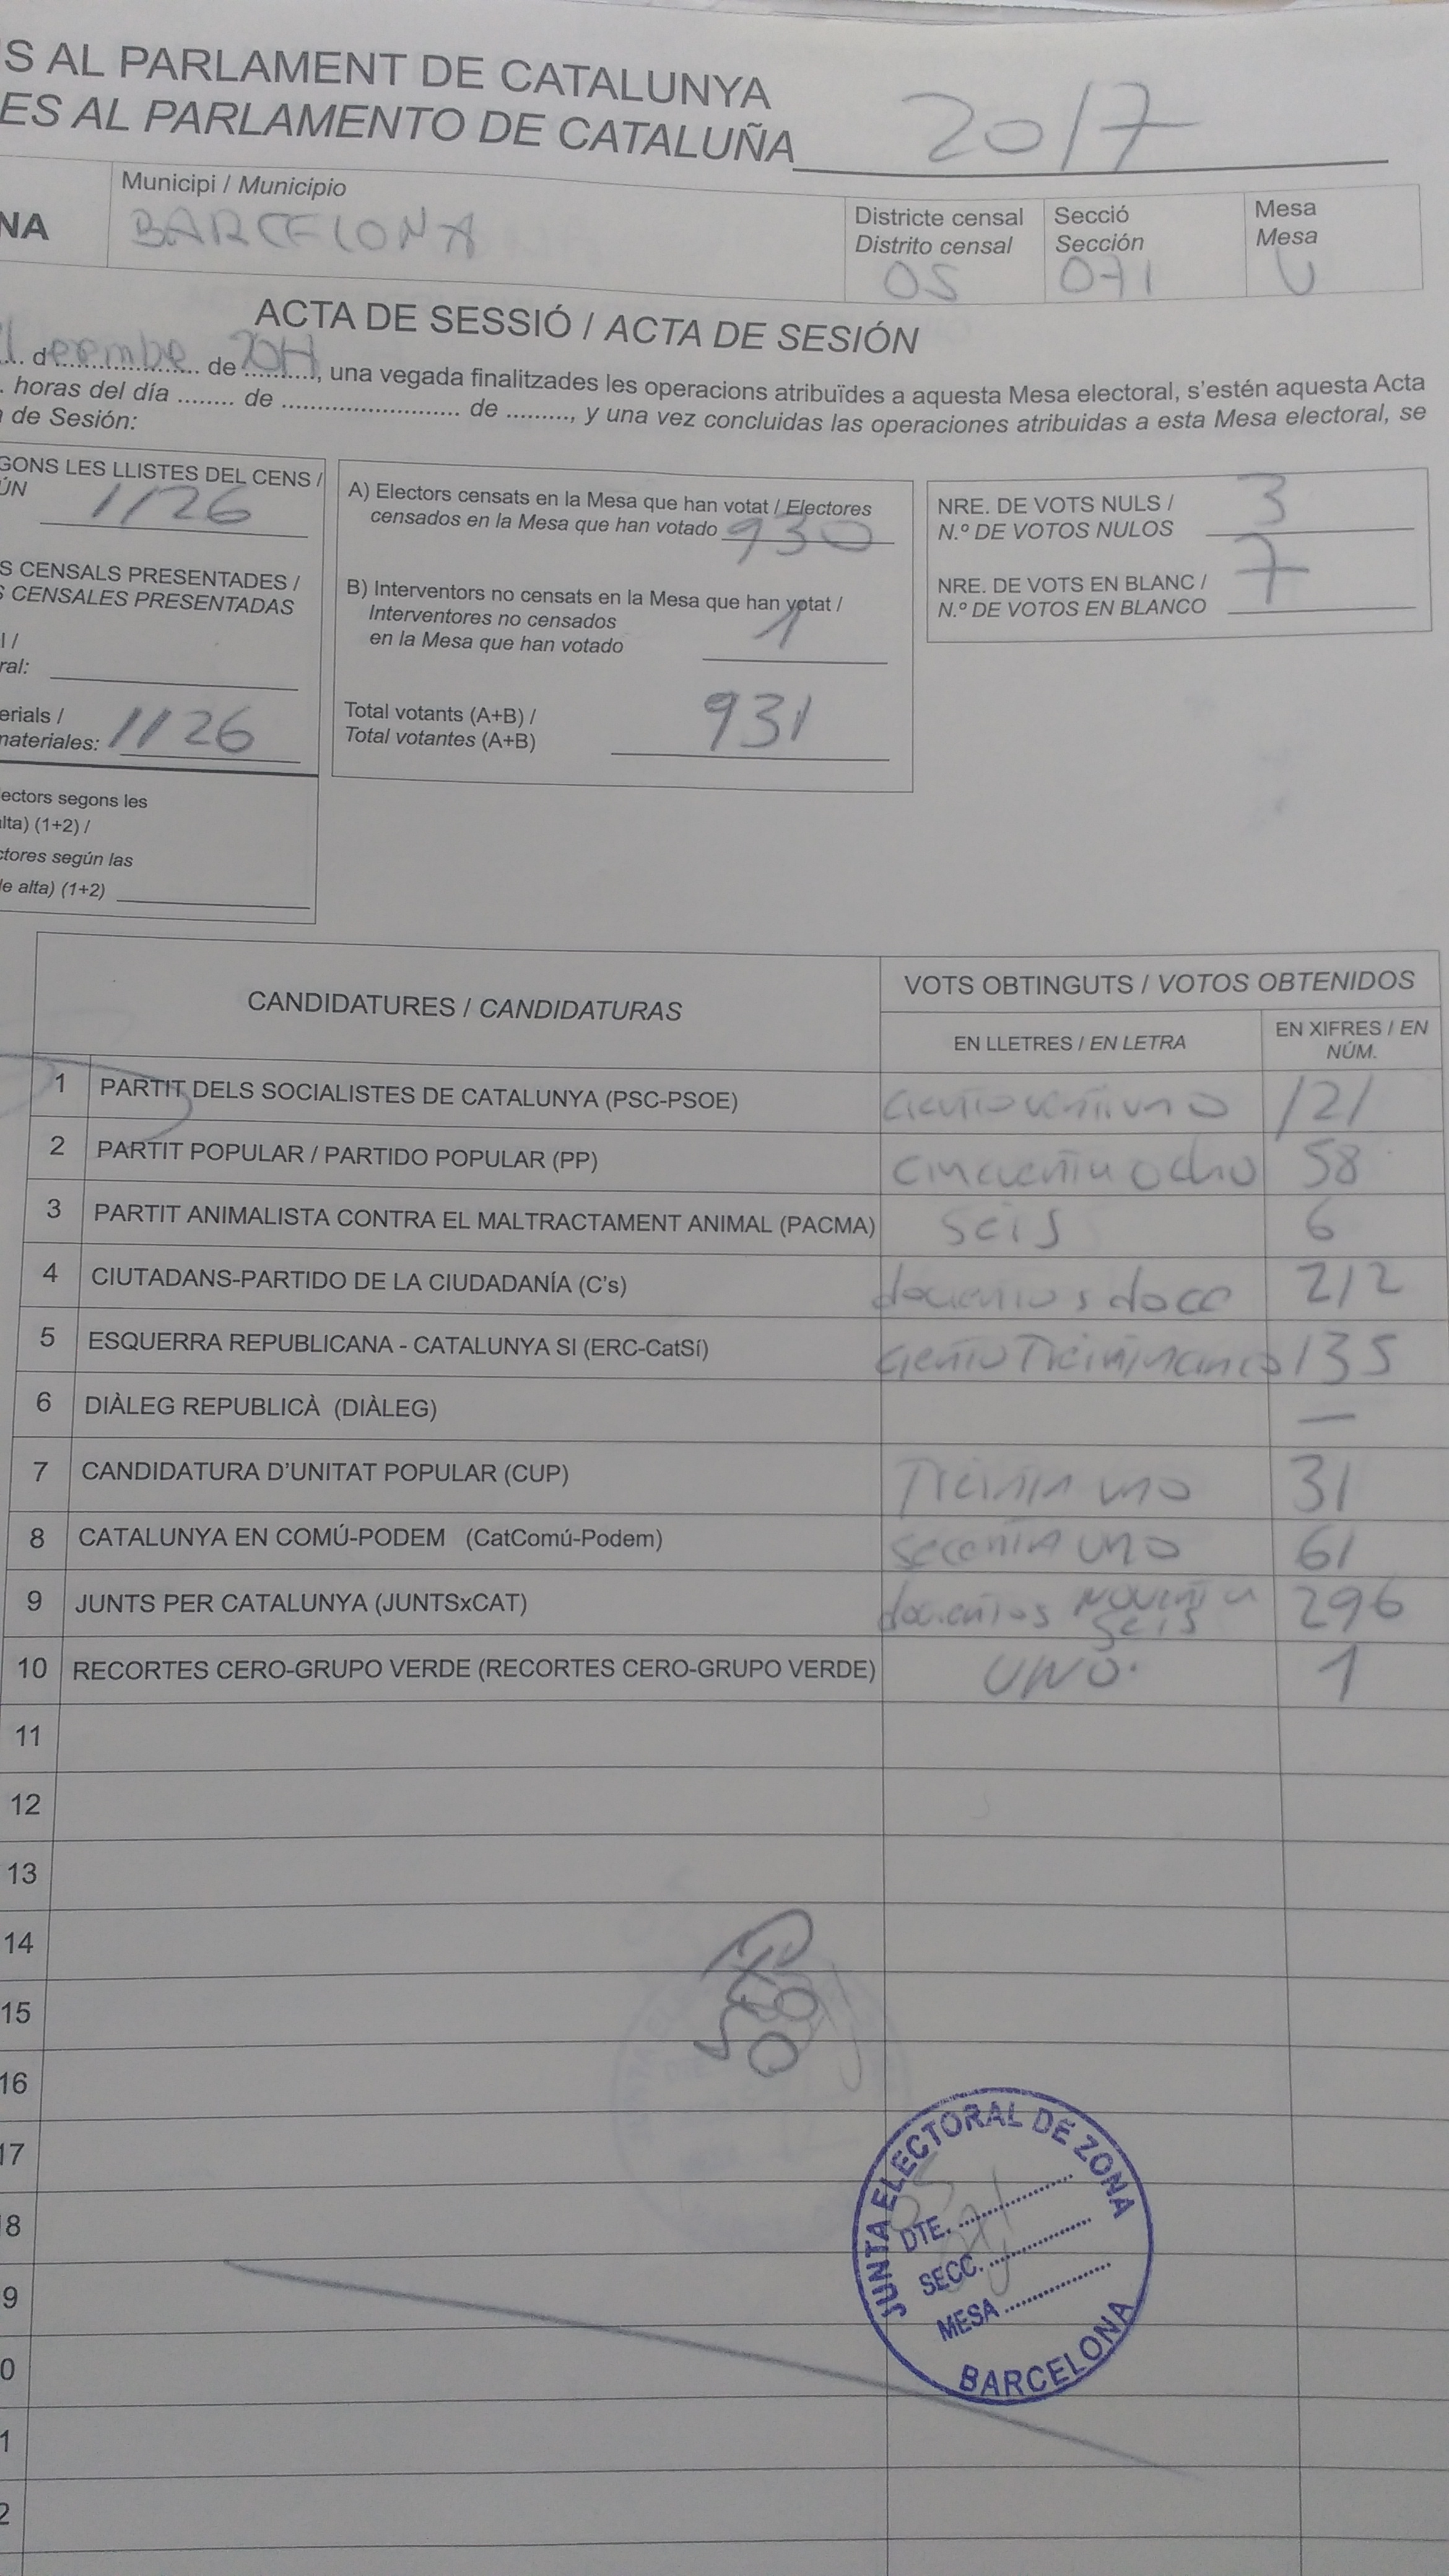 S AL PARLAMENT DE CATALUNYA
ES AL PARLAMENTO DE CATALUÑA 2017
NA
Municipi / Municipio
BARCELONA
Districte censal
Distrito censal
05
Secció
Sección
071
Mesa
Mesa
U
ACTA DE SESSIÓ / ACTA DE SESIÓN
de ........, una vegada finalitzades les operacions atribuïdes a aquesta Mesa electoral, s'estén aquesta Acta
. horas del día ........ de .......................... de .........., y una vez concluidas las operaciones atribuidas a esta Mesa electoral, se
de Sesión:
GONS LES LLISTES DEL CENS /
ÚN 1126
S CENSALS PRESENTADES /
S CENSALES PRESENTADAS
l /
ral:
erials /
materiales: 1126
lectors segons les
alta) (1+2) /
ctores según las
de alta) (1+2)
A) Electors censats en la Mesa que han votat / Electores
censados en la Mesa que han votado 930
B) Interventors no censats en la Mesa que han votat /
Interventores no censados
en la Mesa que han votado 1
Total votants (A+B) /
Total votantes (A+B) 931
NRE. DE VOTS NULS /
N.º DE VOTOS NULOS 3
NRE. DE VOTS EN BLANC /
N.º DE VOTOS EN BLANCO 7
CANDIDATURES / CANDIDATURAS
VOTS OBTINGUTS / VOTOS OBTENIDOS
EN LLETRES / EN LETRA
EN XIFRES / EN
NÚM.
1 PARTIT DELS SOCIALISTES DE CATALUNYA (PSC-PSOE) ciento ventiuno 121
2 PARTIT POPULAR / PARTIDO POPULAR (PP) cincuenta ocho 58
3 PARTIT ANIMALISTA CONTRA EL MALTRACTAMENT ANIMAL (PACMA) seis 6
4 CIUTADANS-PARTIDO DE LA CIUDADANÍA (C's) docientos doce 212
5 ESQUERRA REPUBLICANA - CATALUNYA SI (ERC-CatSí) ciento 135
6 DIÀLEG REPUBLICÀ (DIÀLEG) —
7 CANDIDATURA D'UNITAT POPULAR (CUP) Treinta uno 31
8 CATALUNYA EN COMÚ-PODEM (CatComú-Podem) secenta uno 61
9 JUNTS PER CATALUNYA (JUNTSxCAT) docientos noventa seis 296
10 RECORTES CERO-GRUPO VERDE (RECORTES CERO-GRUPO VERDE) UNO. 1
11
12
13
14
15
16
17
8
9
0
1
2
JUNTA ELECTORAL DE ZONA
DTE. 05
SECC. 071
MESA U
BARCELONA